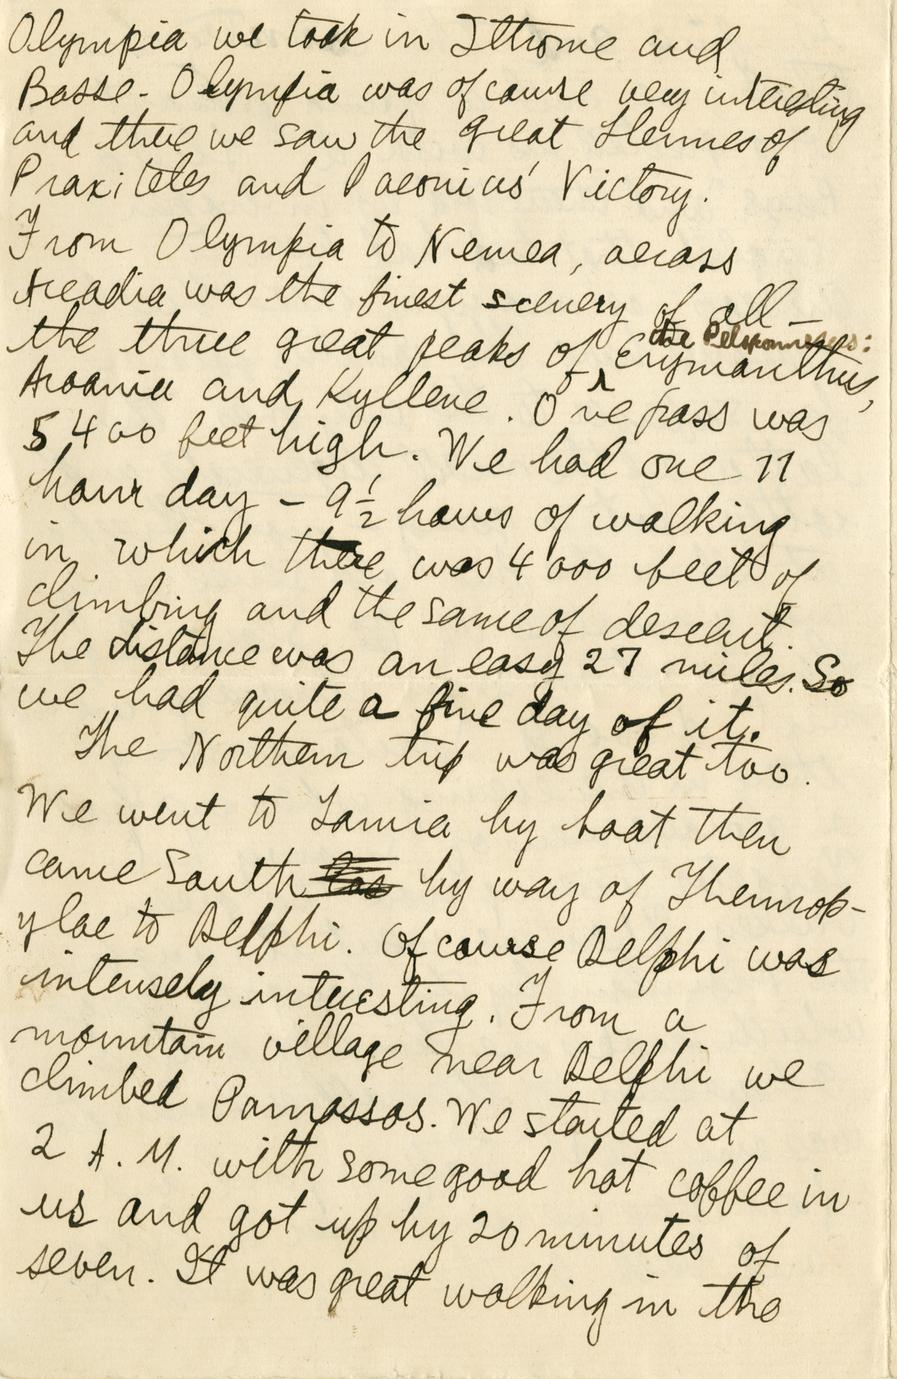 Olympia we took in Ithome and
Basse - Olympia was of course very interesting
and there we saw the great Hermes of
Praxiteles and Paeonius' Victory.
From Olympia to Nemea, across
Arcadia was the finest scenery of all —
the Peloponnesus:
the three great peaks of Erymanthus,
Aroania and Kyllene. One pass was
5400 feet high. We had one 11
hour day - 9½ hours of walking
in which there was 4000 feet of
climbing and the same of descent.
The distance was an easy 27 miles. So
we had quite a fine day of it.
The Northern trip was great too.
We went to Lamia by boat then
came South by way of Thermop-
ylae to Delphi. Of course Delphi was
intensely interesting. From a
mountain village near Delphi we
climbed Parnassos. We started at
2 A.M. with some good hot coffee in
us and got up by 20 minutes of
seven. It was great walking in the